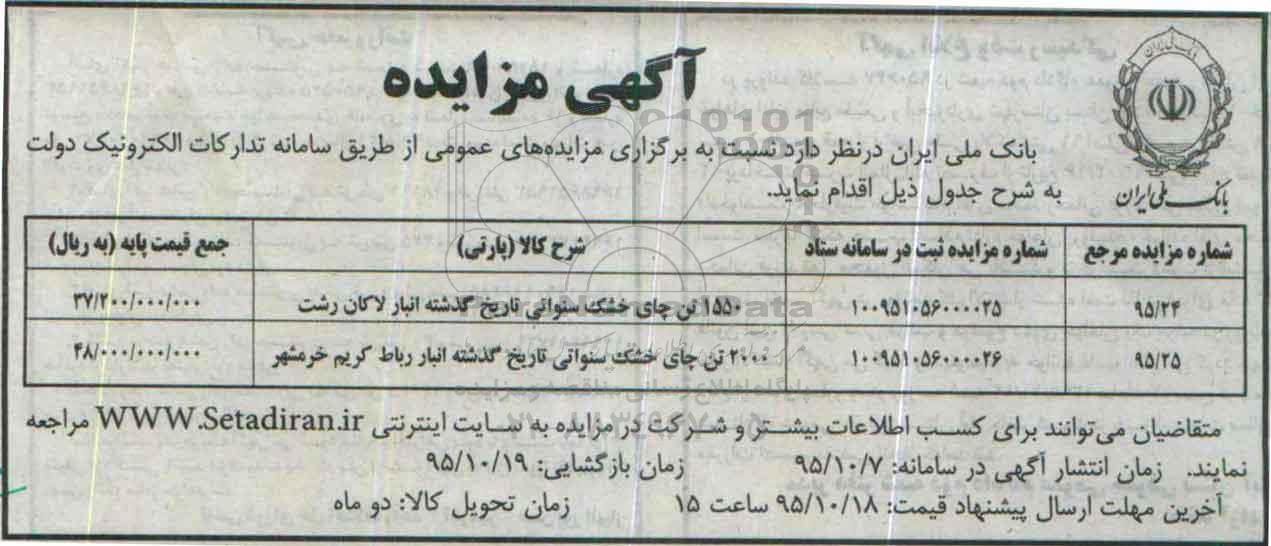 آگهی مزایده
بانک ملی ایران
بانک ملی ایران درنظر دارد نسبت به برگزاری مزایده‌های عمومی از طریق سامانه تدارکات الکترونیک دولت
به شرح جدول ذیل اقدام نماید.
شماره مزایده مرجع شماره مزایده ثبت در سامانه ستاد شرح کالا (پارتی) جمع قیمت پایه (به ریال)
۹۵/۲۴ ۱۰۰۹۵۱۰۵۶۰۰۰۰۲۵ ۱۵۵۰ تن چای خشک سنواتی تاریخ گذشته انبار لاکان رشت ۳۷/۲۰۰/۰۰۰/۰۰۰
۹۵/۲۵ ۱۰۰۹۵۱۰۵۶۰۰۰۰۲۶ ۲۰۰۰ تن چای خشک سنواتی تاریخ گذشته انبار رباط کریم خرمشهر ۴۸/۰۰۰/۰۰۰/۰۰۰
متقاضیان می‌توانند برای کسب اطلاعات بیشتر و شرکت در مزایده به سایت اینترنتی WWW.Setadiran.ir مراجعه
نمایند. زمان انتشار آگهی در سامانه: ۹۵/۱۰/۷ زمان بازگشایی: ۹۵/۱۰/۱۹
آخرین مهلت ارسال پیشنهاد قیمت: ۹۵/۱۰/۱۸ ساعت ۱۵ زمان تحویل کالا: دو ماه